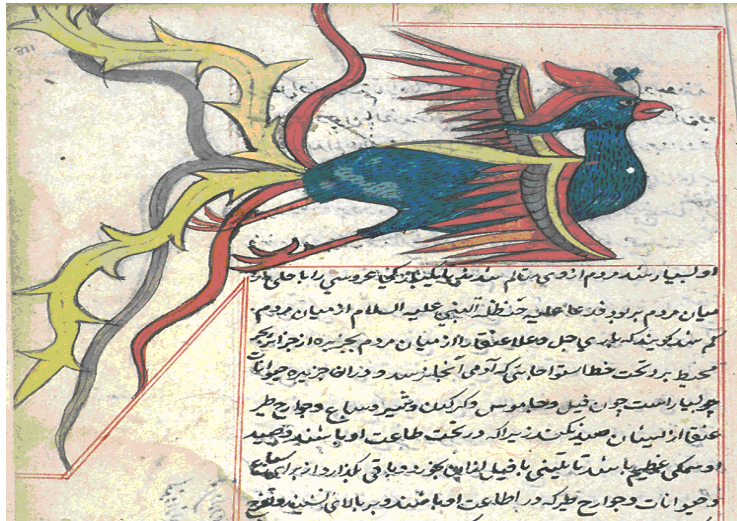 او بسیار شد مردم از وی متالم شدند تا یکبار عروسی را با حلی از
میان مردم بربود فدعا علیه حنظلة النبی علیه السلام از میان مردم
کم شد کویند که باری جل وعلا عنقا را از میان مردم بجزیره از جزایر بحر
محیط برد تحت خط استوا جایی که آدمی آنجا نرسد و در آن جزیره حیوانات
بسیار است چون فیل و جاموس و کرکدن و ببر و سباع و جوارح طیر
عنقا از ایشان صید نکند زیرا که در تحت طاعت او باشند و صید
او سمکی عظیم باشد یا تنینی یا فیل از این بخورد و باقی بگذارد از برای سباع
و حیوانات و جوارح طیر که در اطاعت او باشند و بر بالای نشیند و تفرج